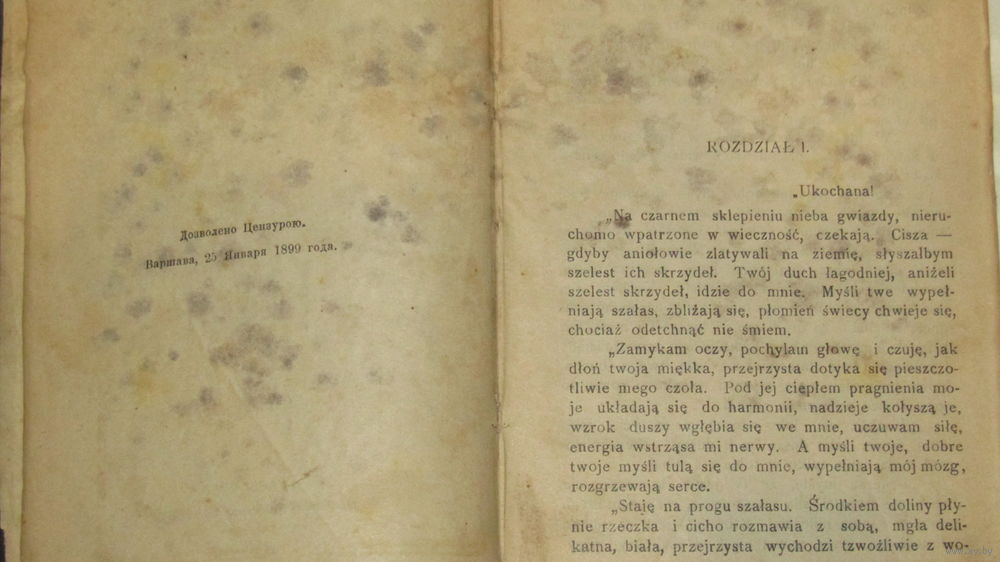 Дозволено Цензурою.
Варшава, 25 Января 1899 года.
ROZDZIAŁ I.
„Ukochana!
„Na czarnem sklepieniu nieba gwiazdy, nieru-
chomo wpatrzone w wieczność, czekają. Cisza —
gdyby aniołowie zlatywali na ziemię, słyszałbym
szelest ich skrzydeł. Twój duch łagodniej, aniżeli
szelest skrzydeł, idzie do mnie. Myśli twe wypeł-
niają szałas, zbliżają się, płomień świecy chwieje się,
chociaż odetchnąć nie śmiem.
„Zamykam oczy, pochylam głowę i czuję, jak
dłoń twoja miękka, przejrzysta dotyka się pieszczo-
tliwie mego czoła. Pod jej ciepłem pragnienia mo-
je układają się do harmonii, nadzieje kołyszą je,
wzrok duszy wgłębia się we mnie, uczuwam siłę,
energia wstrząsa mi nerwy. A myśli twoje, dobre
twoje myśli tulą się do mnie, wypełniają mój mózg,
rozgrzewają serce.
„Staję na progu szałasu. Środkiem doliny pły-
nie rzeczka i cicho rozmawia z sobą, mgła deli-
katna, biała, przejrzysta wychodzi tzwożliwie z wo-